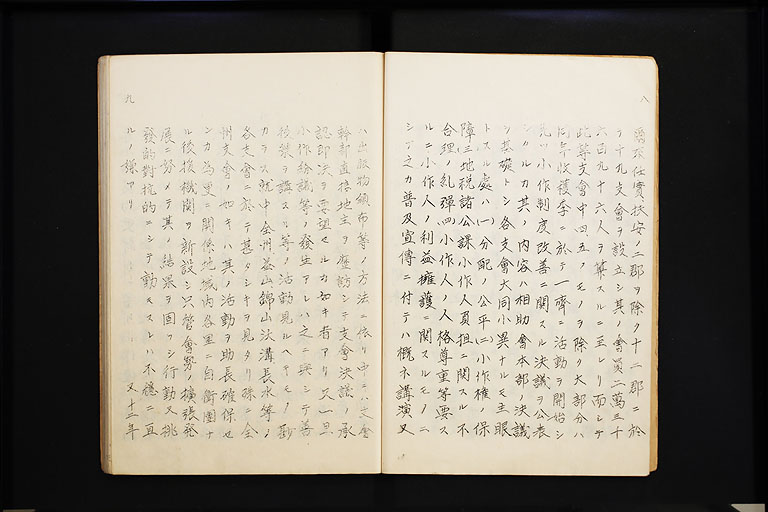 八
爾後任實扶安ノ二郡ヲ除ク十二郡ニ於
テ十九支會ヲ設立シ其ノ會員二萬三千
六百九十六人ヲ算スルニ至レリ而シテ
此等支會中四五ノモノヲ除ク大部分ハ
同年收穫季ニ於テ一齊ニ活動ヲ開始シ
先ツ小作制度改善ニ關スル決議ヲ公表
シタルカ其ノ内容ハ相助會本部ノ決議
ヲ基礎トシ各支會大同小異ナルモ主眼
トスル處ハ(一)分配ノ公平(二)小作權ノ保
障(三)地税諸公課小作人負担ニ關スル不
合理ノ糺弾(四)小作人ノ人格尊重等要ス
ルニ小作人ノ利益擁護ニ關スルモノニ
シテ之カ普及宣傳ニ付テハ概ネ講演又
九
ハ出版物頒布等ノ方法ニ依リ中ニハ支會
幹部直接地主ヲ歴訪シテ支會決議ノ承
認即決ヲ要望スルカ如キ者アリ又一旦
小作紛議等ノ發生アレハ之ニ對シテ善
後策ヲ講スル等ノ活動見ルヘキモノ尠
カラス就中全州益山錦山沃溝長水等ノ
各支會ニ於テ甚タシキヲ見タリ殊ニ全
州支會ノ如キハ其ノ活動ヲ助長確保セ
ンカ為更ニ關係地域内各里ニ自衛團ナ
ル後援機關ヲ新設シ只管會勢ノ擴張發
展ニ努メテ其ノ結束ヲ固フシ行動又挑
發的對抗的ニシテ動モスレハ不穏ニ亘
ルノ嫌アリ 又十二年